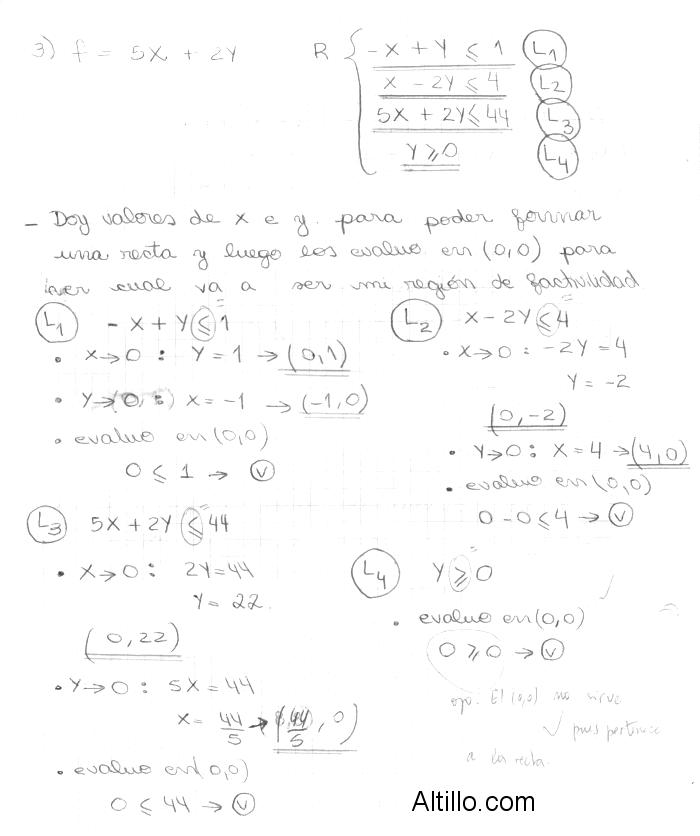 3) f = 5X + 2Y R { -X + Y ≤ 1 L1
X - 2Y ≤ 4 L2
5X + 2Y ≤ 44 L3
Y ≥ 0 L4
- Doy valores de x e y. para poder formar
una recta y luego los evaluo en (0,0) para
ver cual va a ser mi región de factivilidad
L1 - X + Y ≤ 1
=
• X→0 : Y = 1 → (0,1)
• Y→0 : X = -1 → (-1,0)
• evaluo en (0,0)
0 ≤ 1 → V
L2 X - 2Y ≤ 4
=
• X→0 : -2Y = 4
Y = -2
(0,-2)
• Y→0 : X = 4 → (4,0)
• evaluo en (0,0)
0 - 0 ≤ 4 → V
L3 5X + 2Y ≤ 44
=
• X→0 : 2Y = 44
Y = 22.
(0,22)
• Y→0 : 5X = 44
X = 44/5 → (44/5, 0)
• evaluo en (0,0)
0 ≤ 44 → V
L4 Y ≥ 0
=
• evaluo en (0,0)
0 ≥ 0 → V
ojo: El (0,0) no sirve
pues pertenece
a la recta.
Altillo.com